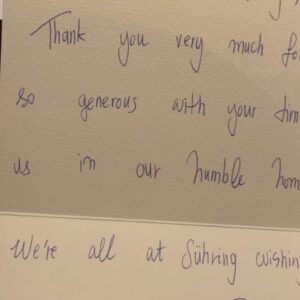 Thank you very much fo
so generous with your tim
us in our humble hom
We're all at Sühring wishin